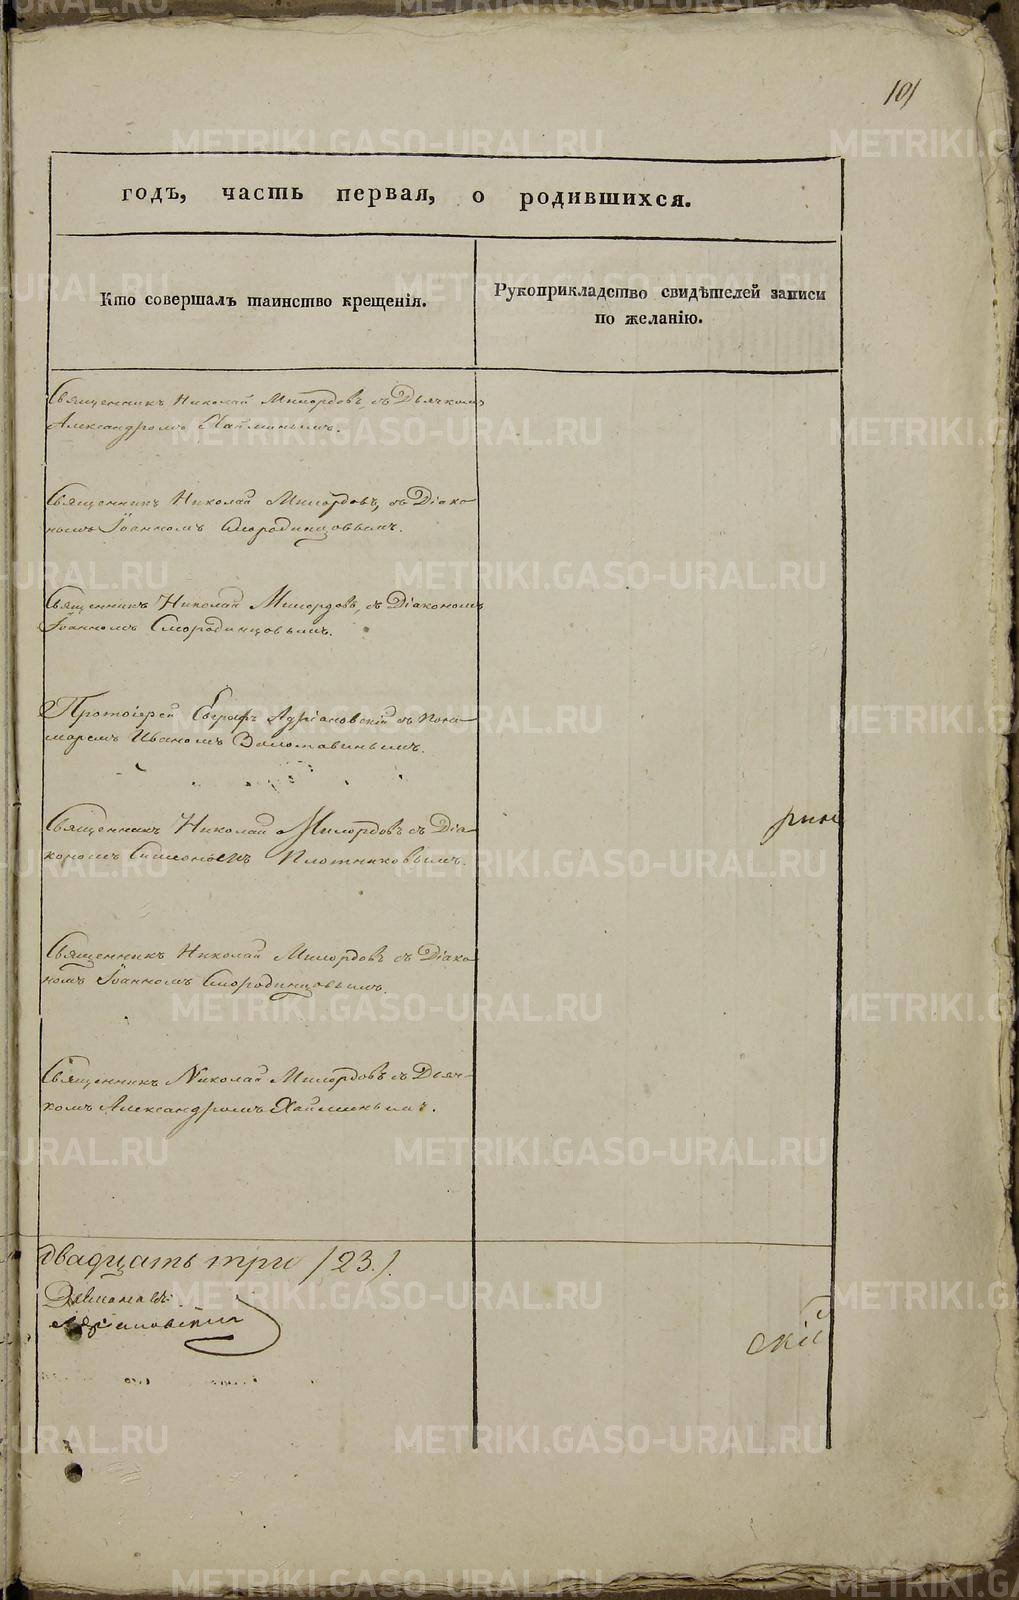 101
годъ, часть первая, о родившихся.
Кто совершалъ таинство крещенія.
Рукоприкладство свидѣтелей записи
по желанію.
Священникъ Николай Милордовъ, съ Дьячкомъ
Александромъ Хайминымъ.
Священникъ Николай Милордовъ, съ Діако-
номъ Іоанномъ Смородинцовымъ.
Священникъ Николай Милордовъ, съ Діакономъ
Іоанномъ Смородинцовымъ.
Протоіерей Евграфъ Адріановскій съ Поно-
маремъ Иваномъ Золотавинымъ.
Священникъ Николай Милордовъ съ Діа-
кономъ Симеономъ Плотниковымъ.
рин
Священникъ Николай Милордовъ съ Діако-
номъ Іоанномъ Смородинцовымъ.
Священникъ Николай Милордовъ съ Дьяч-
комъ Александромъ Хайминымъ.
двадцать три /23./.
скій
METRIKI.GASO-URAL.RU